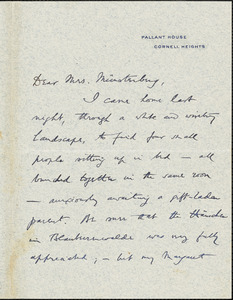 PALLANT HOUSE
CORNELL HEIGHTS
Dear Mrs. Münsterberg,
I came home last
night, through a white and wintry
landscape, to find four small
people sitting up in bed — all
bundled together in the same room
— anxiously awaiting a gift-laden
parent. At once that the Häuschen
in was very fully
appreciated; — but my Margaret